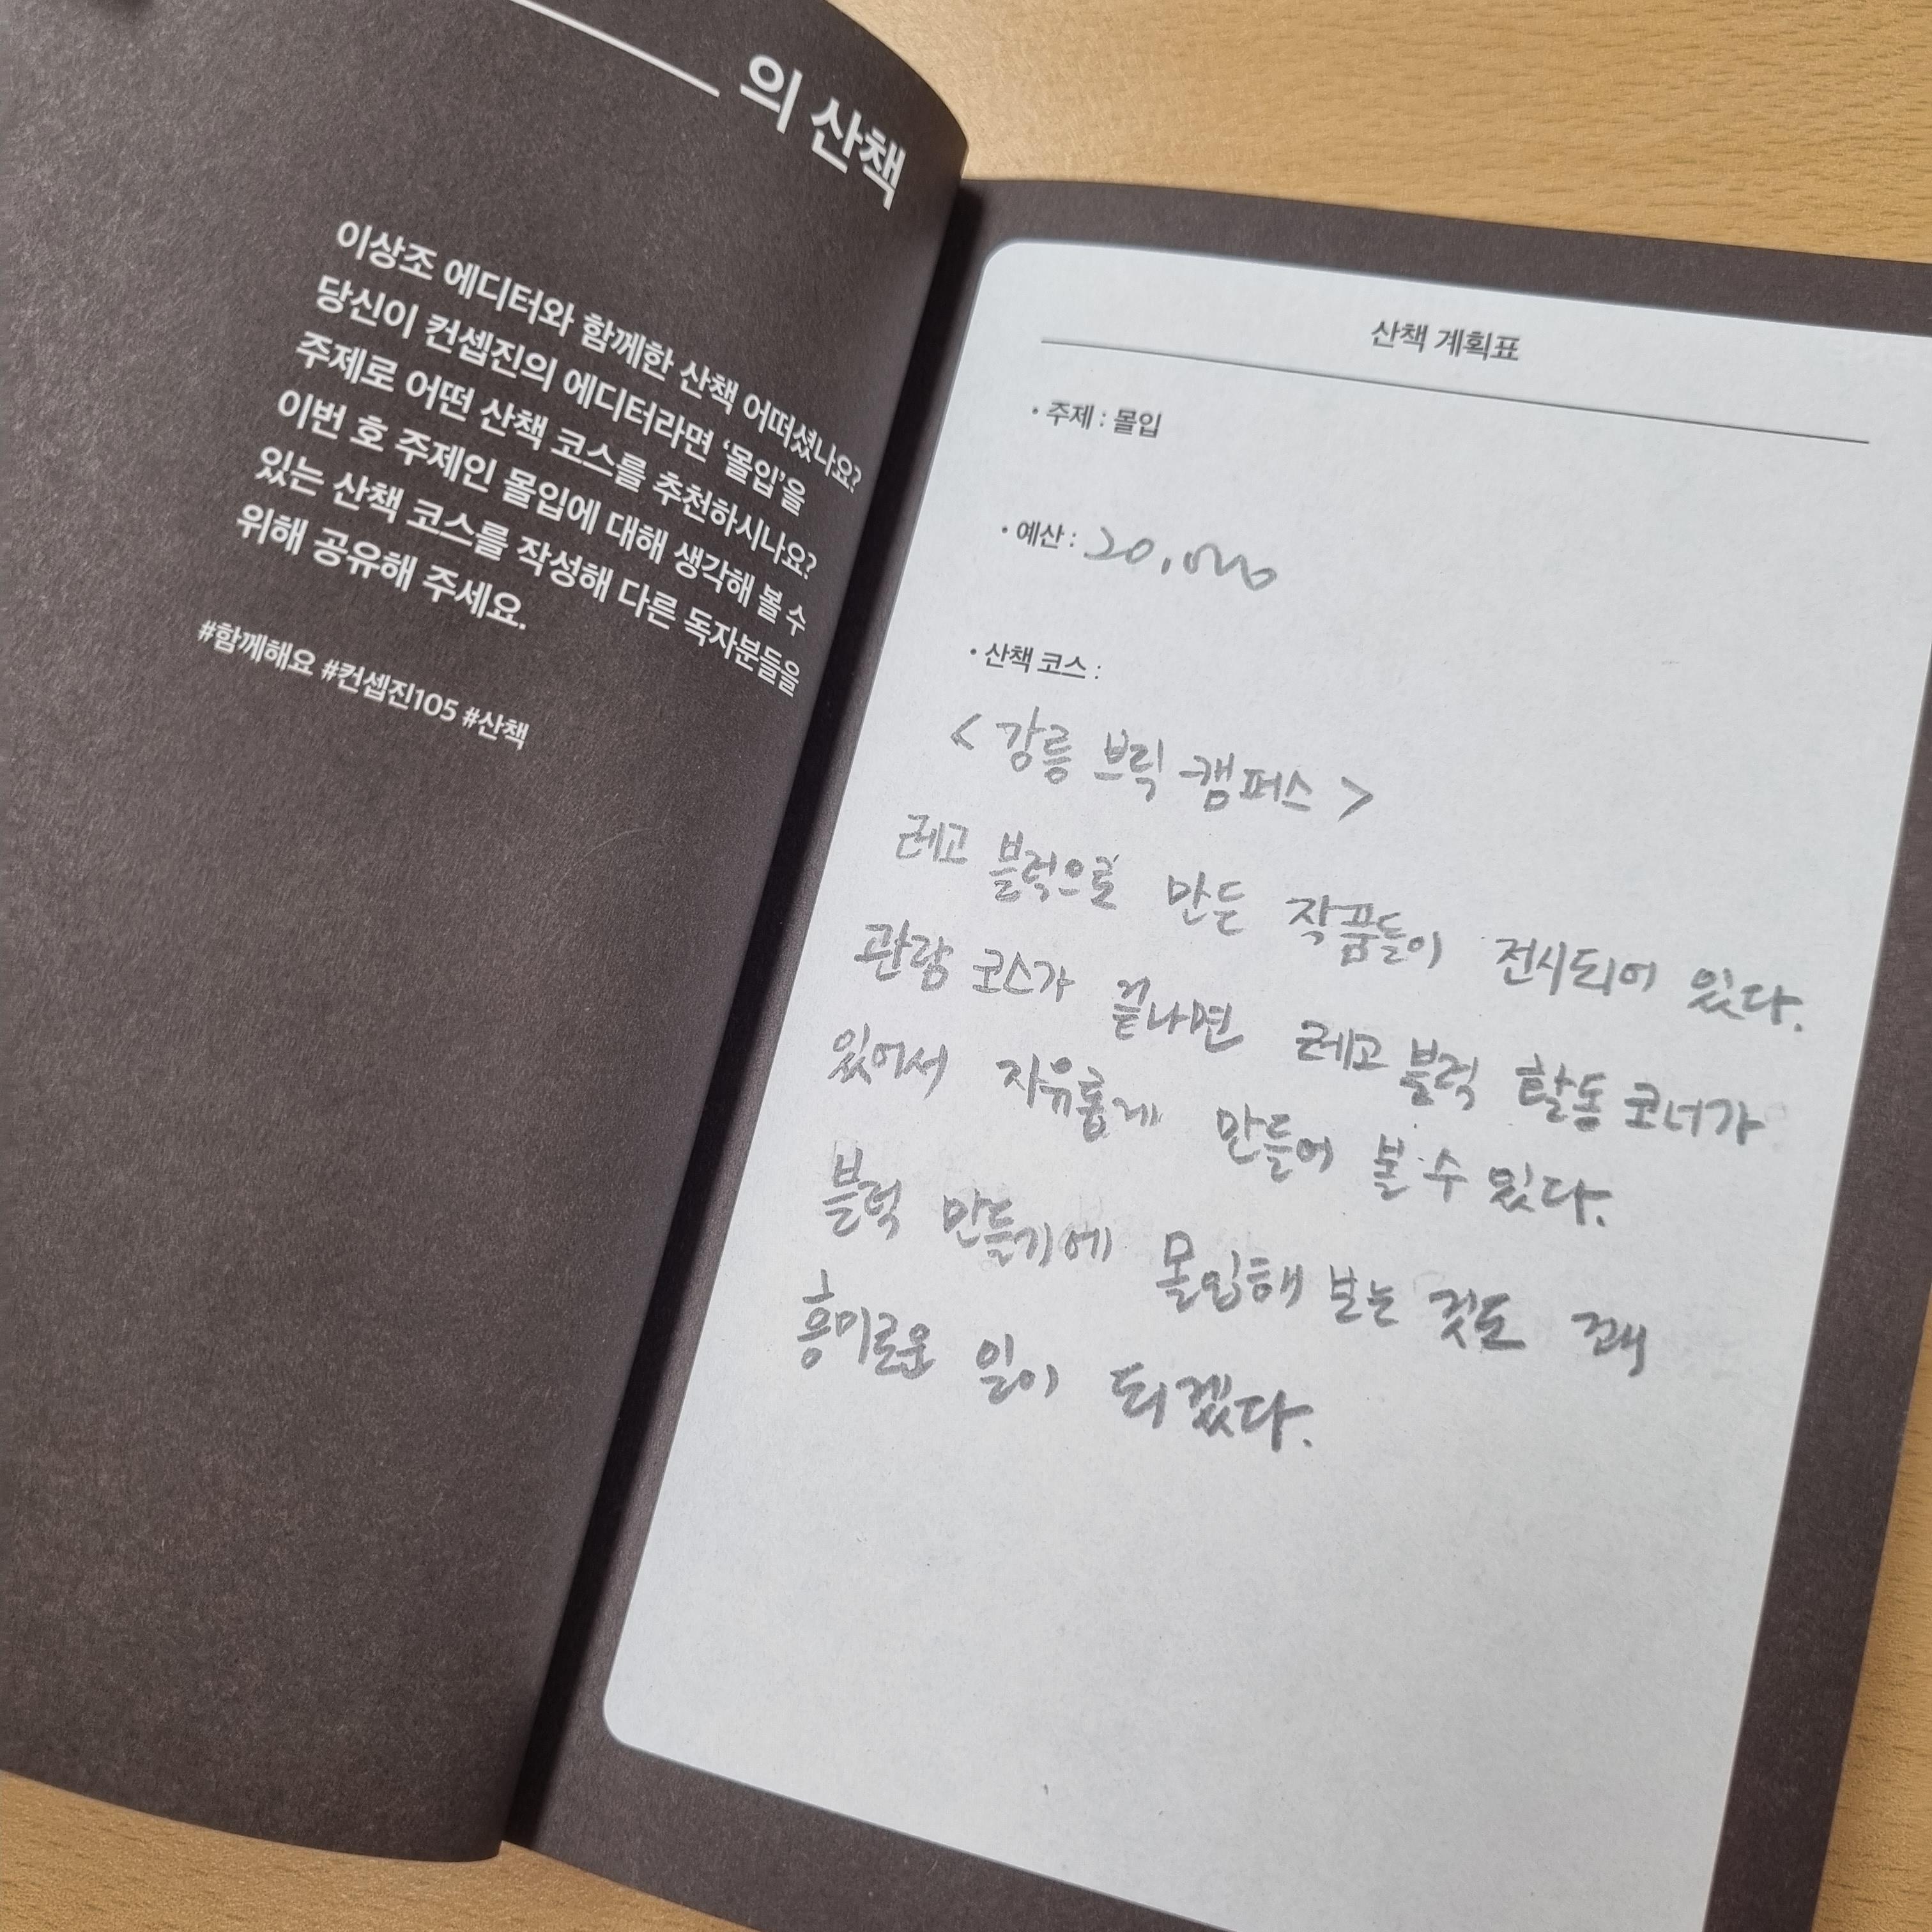 의 산책
이상조 에디터와 함께한 산책 어떠셨나요?
당신이 컨셉진의 에디터라면 ‘몰입’을
주제로 어떤 산책 코스를 추천하시나요?
이번 호 주제인 몰입에 대해 생각해 볼 수
있는 산책 코스를 작성해 다른 독자분들을
위해 공유해 주세요.
#함께해요 #컨셉진105 #산책
산책 계획표
• 주제 : 몰입
• 예산 : 20,000
• 산책 코스 :
< 강릉 브릭 캠퍼스 >
레고 블럭으로 만든 작품들이 전시되어 있다.
관람 코스가 끝나면 레고 블럭 활동 코너가
있어서 자유롭게 만들어 볼 수 있다.
블럭 만들기에 몰입해 보는 것도 꽤
흥미로운 일이 되겠다.